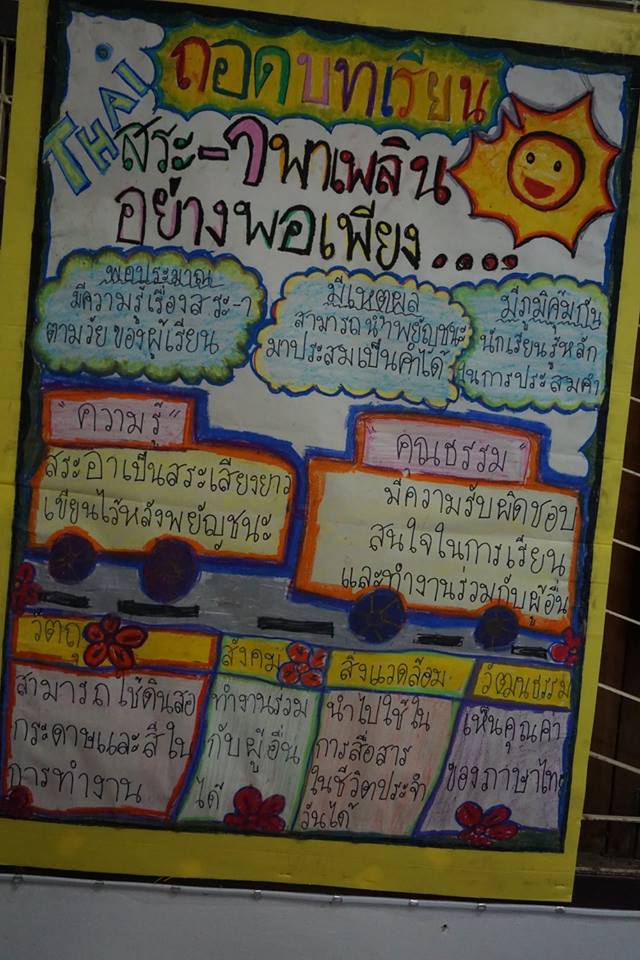 THAI
ถอดบทเรียน
สระ-าพาเพลิน
อย่างพอเพียง....
พอประมาณ
มีความรู้เรื่องสระ-า
ตามวัยของผู้เรียน
มีเหตุผล
สามารถนำพยัญชนะ
มาประสมเป็นคำได้
มีภูมิคุ้มกัน
นักเรียนรู้หลัก
ในการประสมคำ
"ความรู้"
สระอาเป็นสระเสียงยาว
เขียนไว้หลังพยัญชนะ
"คุณธรรม"
มีความรับผิดชอบ
สนใจในการเรียน
และทำงานร่วมกับผู้อื่น
วัตถุ
สามารถใช้ดินสอ
กระดาษและสีใน
การทำงาน
สังคม
ทำงานร่วม
กับผู้อื่น
ได้
สิ่งแวดล้อม
นำไปใช้ใน
การสื่อสาร
ในชีวิตประจำ
วันได้
วัฒนธรรม
เห็นคุณค่า
ของภาษาไทย